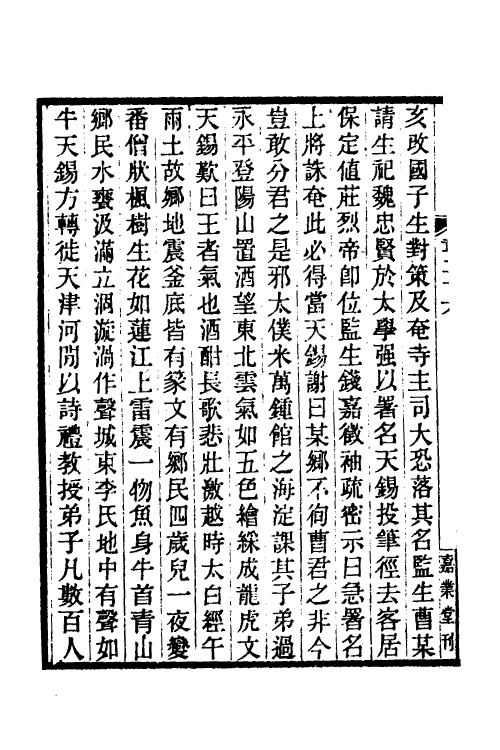 亥改國子生對策及奄寺主司大恐落其名監生曹某
請生祀魏忠賢於太學强以署名天錫投筆徑去客居
保定値莊烈帝卽位監生錢嘉徵袖疏密示曰急署名
上將誅奄此必得當天錫謝曰某鄉不徇曹君之非今
豈敢分君之是邪太僕米萬鍾館之海淀課其子弟過
永平登陽山置酒望東北雲氣如五色繪綵成龍虎文
天錫歎曰王者氣也酒酣長歌悲壯激越時太白經午
雨土故鄉地震釜底皆有篆文有鄉民四歲兒一夜變
番僧狀楓樹生花如蓮江上雷震一物魚身牛首青山
鄉民水甕汲滿立涸漩渦作聲城東李氏地中有聲如
牛天錫方轉徙天津河閒以詩禮教授弟子凡數百人
嘉業堂刊